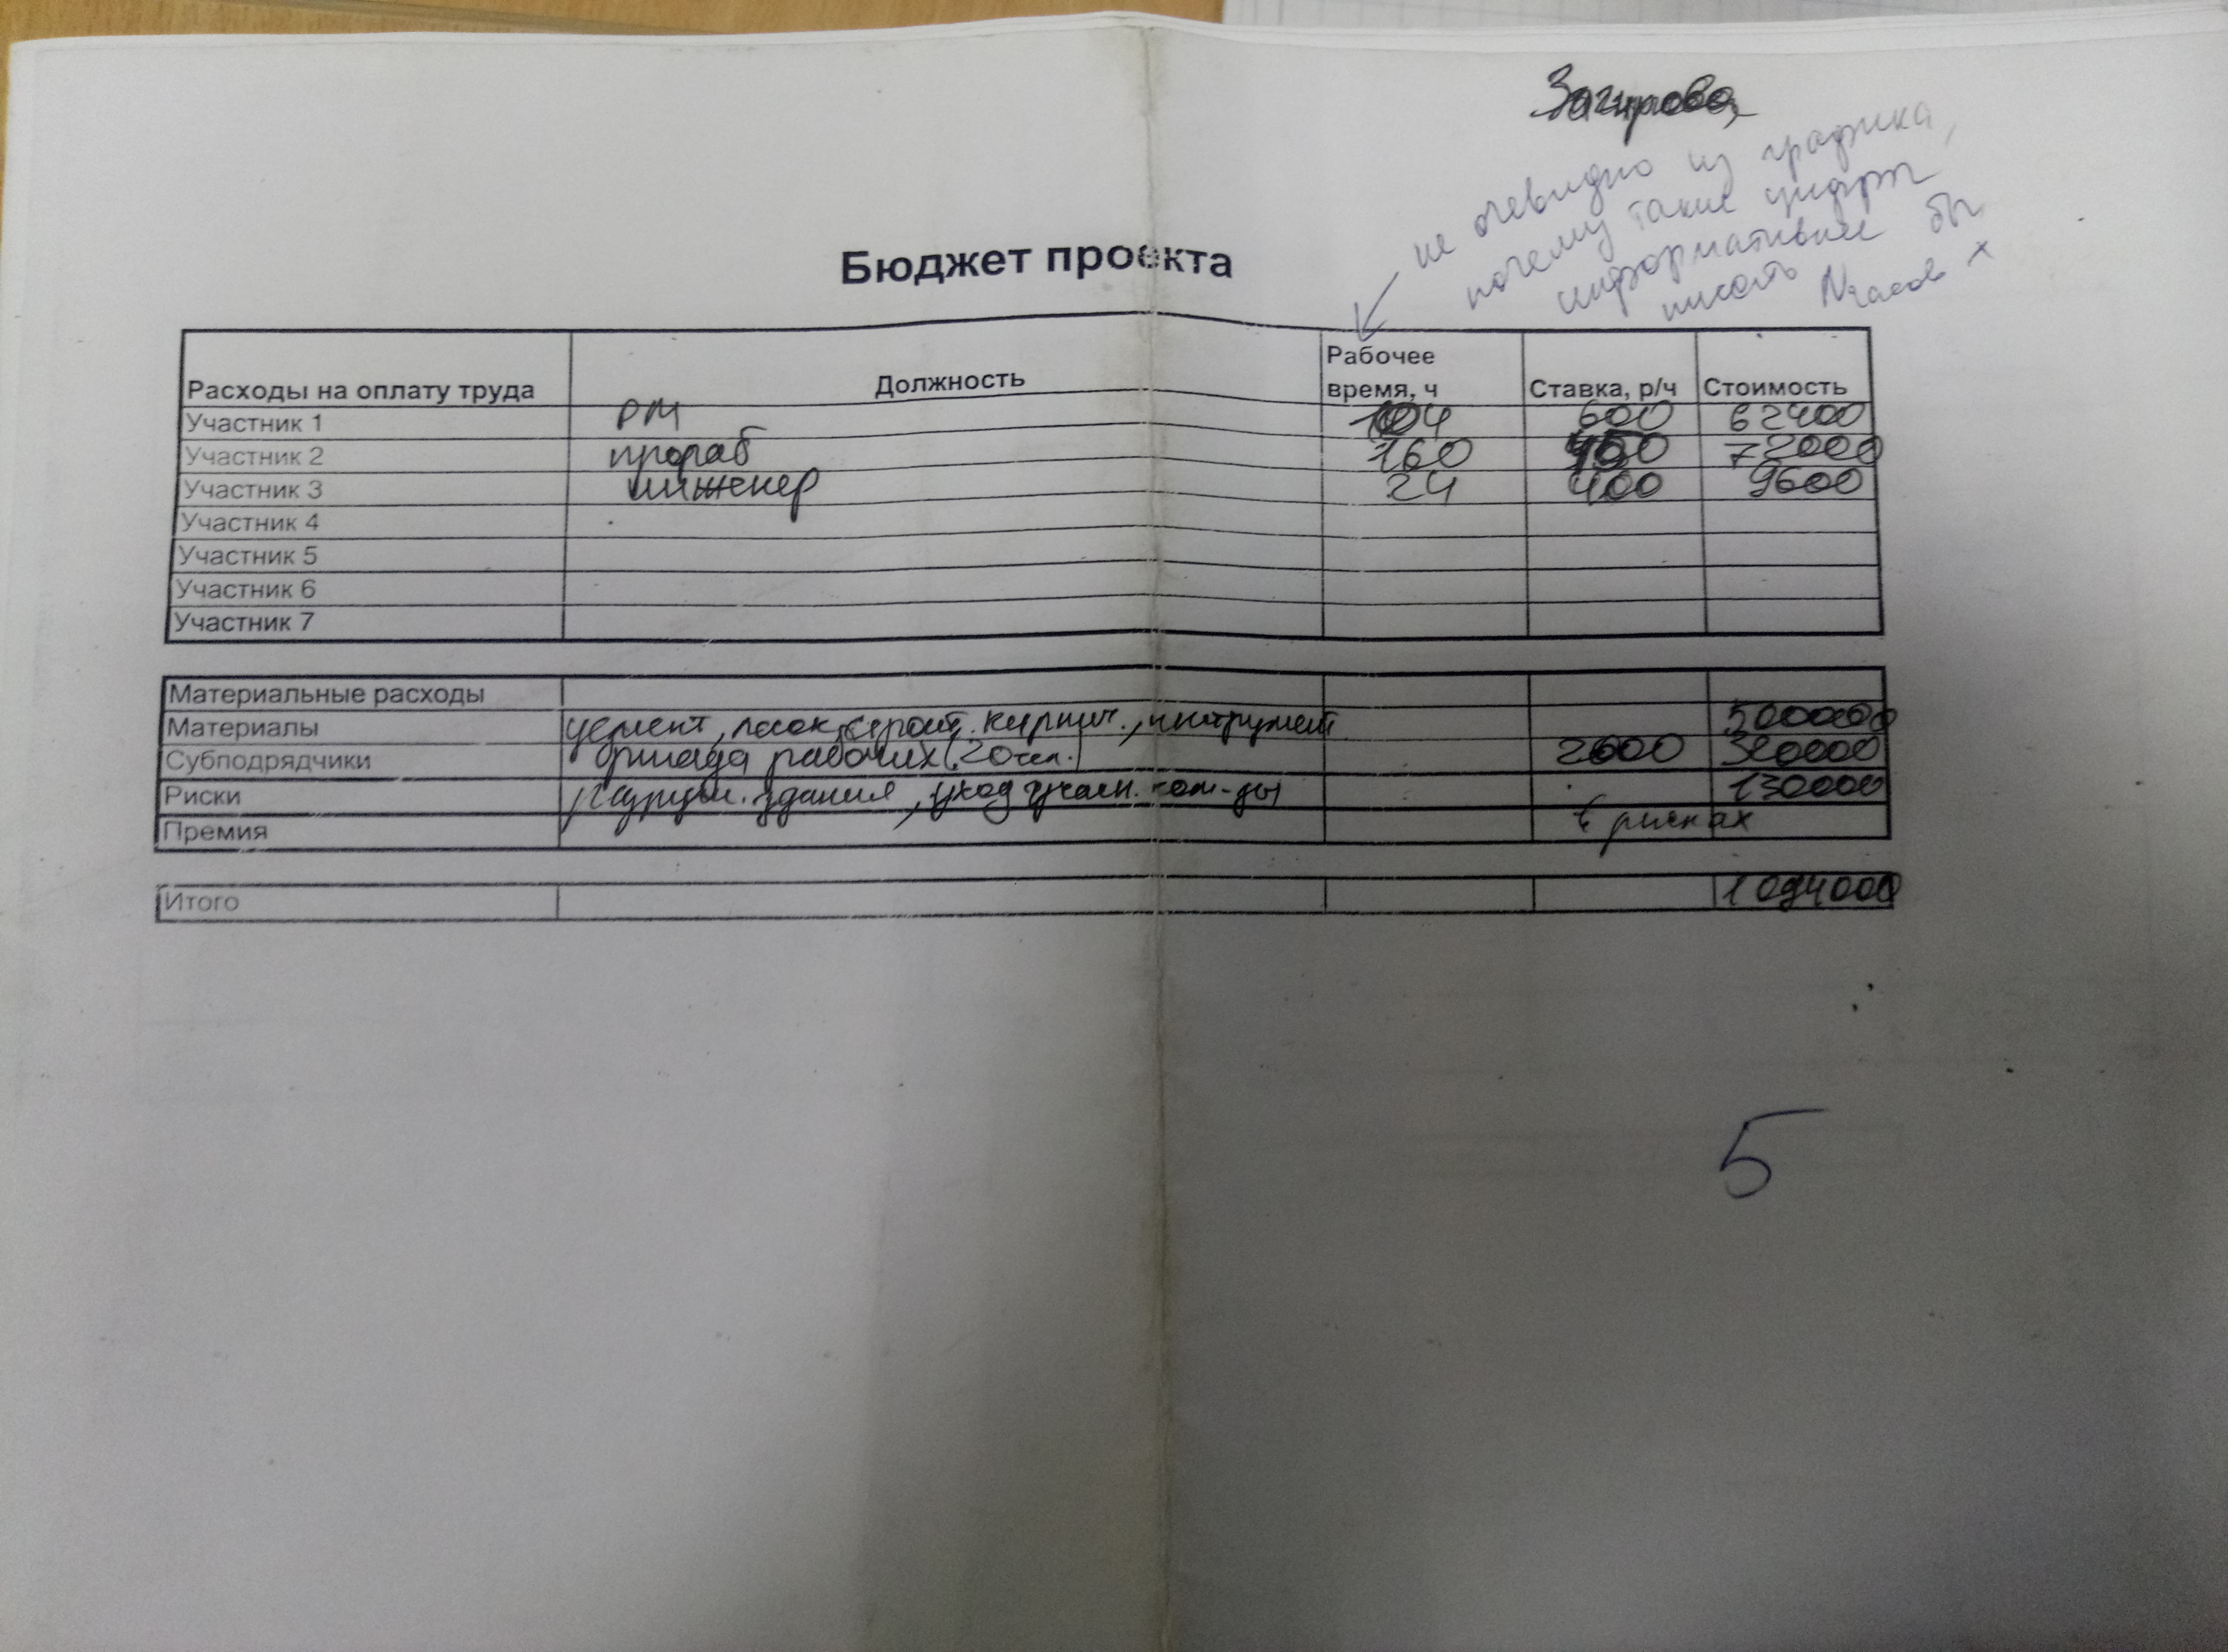 Загирова
не очевидно из графика,
почему такие цифры
информативнее бы
писать N часов x
Бюджет проекта
Расходы на оплату труда Должность Рабочее время, ч Ставка, р/ч Стоимость
Участник 1 PM 104 600 62400
Участник 2 прораб 160 450 72000
Участник 3 инженер 24 400 9600
Участник 4
Участник 5
Участник 6
Участник 7
Материальные расходы
Материалы цемент, песок, строит. кирпич., инструмент 500000
Субподрядчики бригада рабочих (20чел.) 2000 320000
Риски здания, уход участ. ком-ды 130000
Премия в рисках
Итого 1094000
5